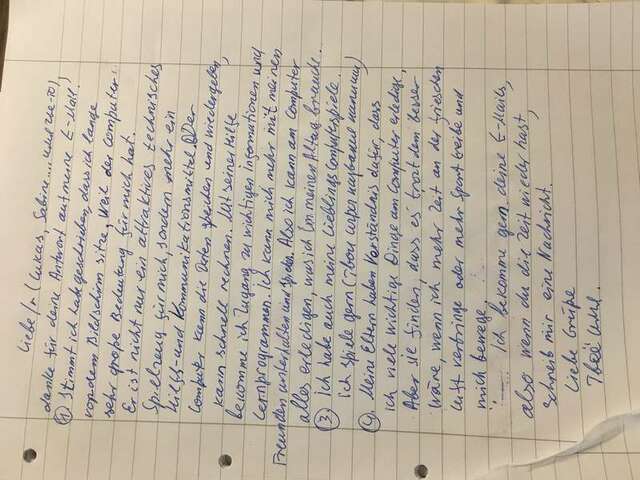 Liebe/r (Lukas, Sabine.... или кто-то),
danke für deine Antwort auf meine E-Mail.
① Stimmt ich habe geschrieben, dass ich lange
vor dem Bildschirm sitze, weil der Computer
sehr große Bedeutung für mich hat.
Er ist nicht nur ein attraktives technisches
Spielzeug für mich, sondern mehr ein
Hilfs-und Kommunikationsmittel. ② Der
Computer kann die Daten speichen und wiedergeben,
kann schnell rechnen. Mit seiner Hilfe
bekomme ich Zugang zu wichtigen Informationen und
Lernprogrammen. Ich kann mich mehr mit meinen
Freunden unterhalten und spielen. Also ich kann am Computer
alles erledigen, was ich im meinen Alltag brauche.
③ Ich habe auch meine Lieblingscomputerspiele.
Ich spiele gern (твои игры название напиши)
④. Meine Eltern haben Verständnis dafür, dass
ich viele wichtige Dinge am Computer erledige,
Aber sie finden, dass es trozt dem besser
wäre, wenn ich mehr Zeit an der frieschen
Luft verbringe oder mehr Sport treibe und
mich bewege.
Ich bekomme gern deine E-Mails,
also wenn du die Zeit wieder hast,
schreib mir eine Nachricht.
Liebe Grüße
Твоё имя.